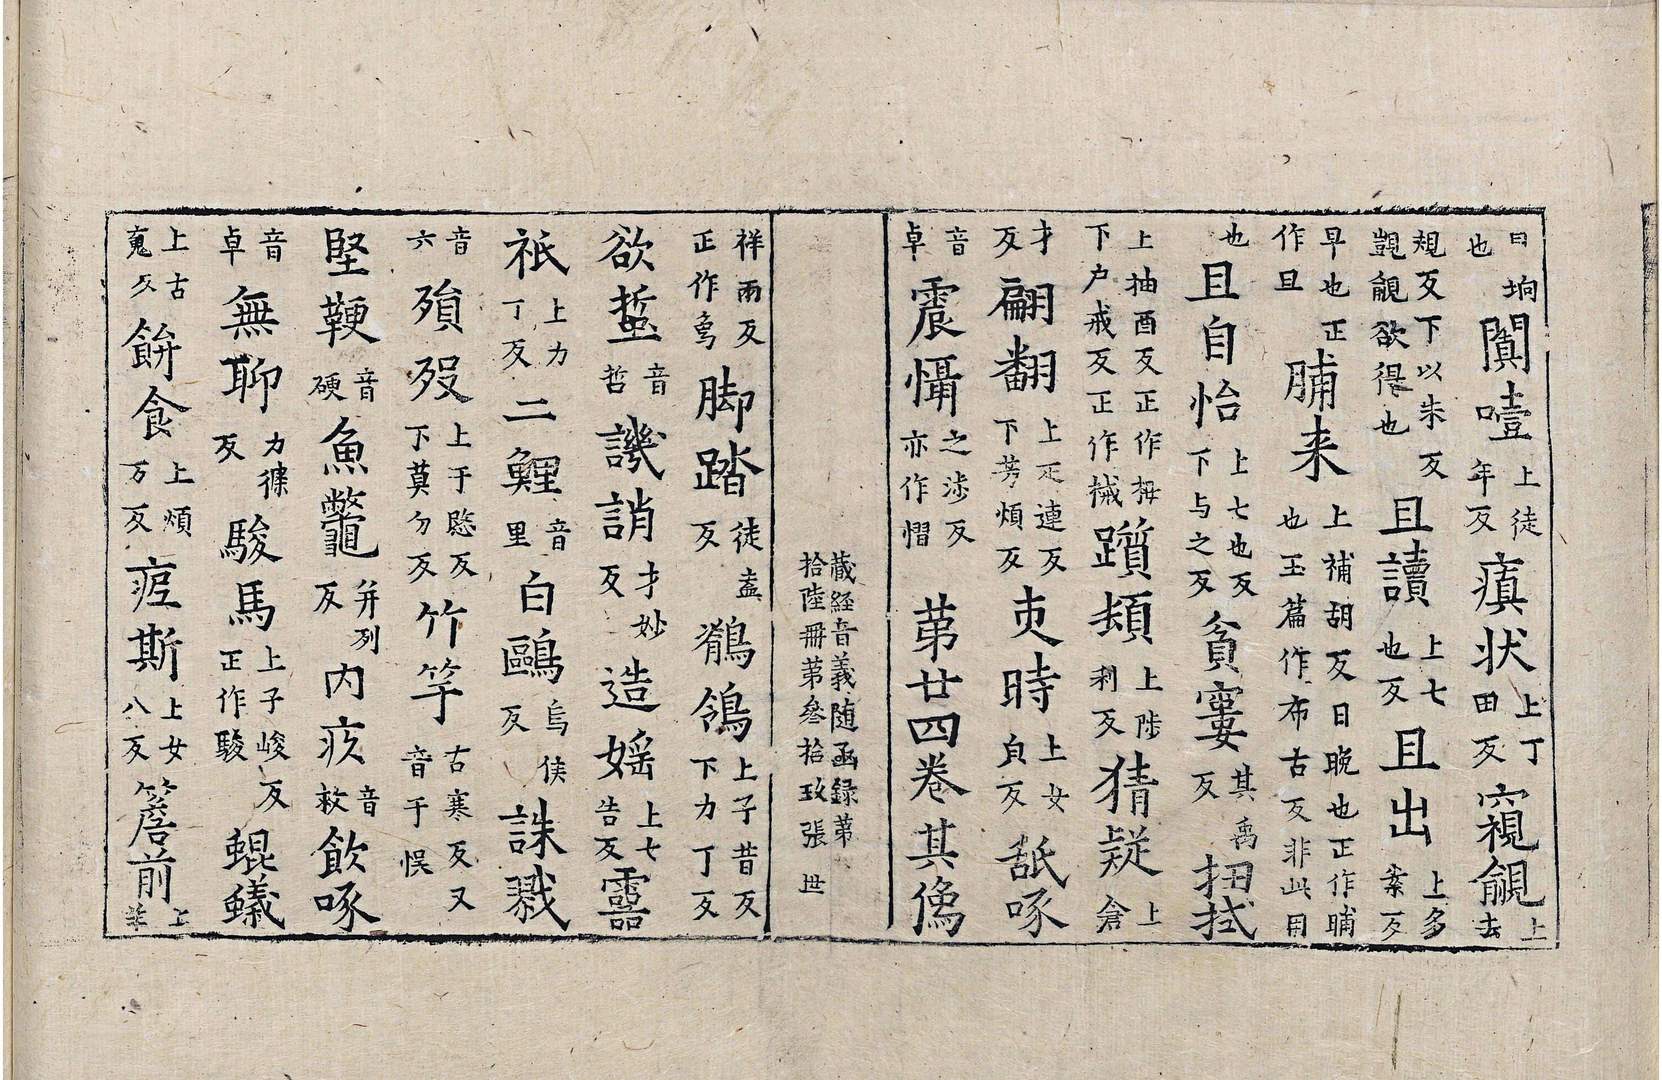 曰坰也闐噎上徒年反瘨状上丁田反窺覦上去
規反下以朱反覬覦欲得也且讀上七也反且出上多案反
早也正作旦脯来上補胡反日晚也正作晡也玉篇作布古反非此用
也且自怡上七也反下与之反貧寠其禹反扭拭
上抽酉反正作杻下户戒反正作械躓頬上陟利反猜疑上倉
才反翩翻上疋連反下芳煩反吏時上女貞反舐啄
音卓震懾之涉反亦作慴第廿四卷其傿
藏经音義随函録第拾陸冊第叄拾玖張 世
祥雨反正作鸟脚踏徒盍反鶺鴒上子昔反下力丁反
欲蜇音哲譏誚才妙反造媱上七告反嚣
祇上力丁反二鯉音里白鷗烏侯反誅戮
音六殞歿上于愍反下莫勿反竹竿古寒反又音干悮
堅鞕音硬魚鼈并列反内疚音救飲啄
音卓無聊力條反駿馬上子峻反正作駿蜫蟻
上古䰟反餅食上煩万反疟斯上女八反簷前上羊